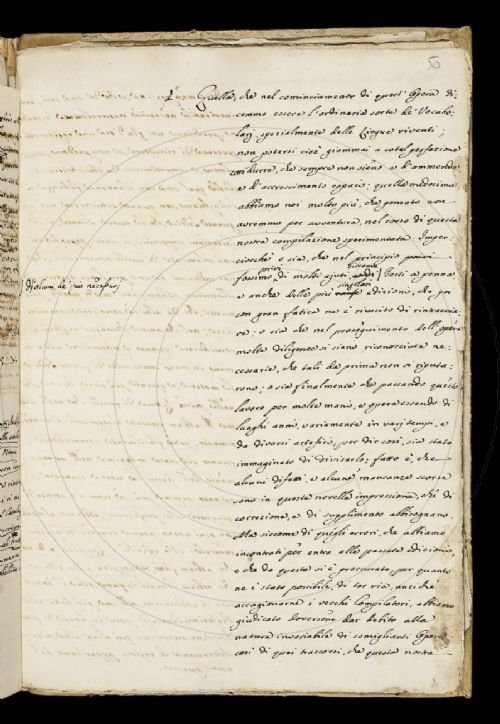 50
Quella, che nel cominciamento di quest'Opera di-
cemmo essere l'ordinaria sorte de' Vocabo-
larj spezialmente delle Lingue viventi,
non potersi cioè giammai a cotal perfezione
condurre, che sempre non sieno e d'ammenda
e d'accrescimento capaci: quella medesima
abbiamo noi molto più, che pensato non
avremmo per avventura, nel corso di questa
nostra compilazione sperimentata. Imper-
ciocchè o sia, che nel principio
fossimo di molti ajuti Testi a penna
e anche delle più singolari edizioni, che poi
con gran fatica ne è riuscito di rintraccia-
re: o sia che nel proseguimento dell'opera
molte diligenze si siano riconosciute ne-
cessarie, che tali da prima non si riputa-
rono: o sia finalmente che passando questo
lavoro per molte mani, e opera essendo di
lunghi anni, variamente in varj tempi, e
da diversi artefici, per dir così, sia stato
immaginato di divisarlo; fatto è, che
alcuni difetti, e alcune mancanze scorse
sono in questa novella impressione, che di
correzione, e di supplimento abbisognano.
Ma siccome di quegli errori, che abbiamo
incontrati per entro alla passata edizione,
e che da questa si è proccurato, per quanto
ne è stato possibile, di tor via, anzichè
accagionarne i vecchi Compilatori, abbiamo
giudicato doversene dar debito alla
natura insaziabile di somiglianti Ope-
così di quei trascorsi, che questa nostra